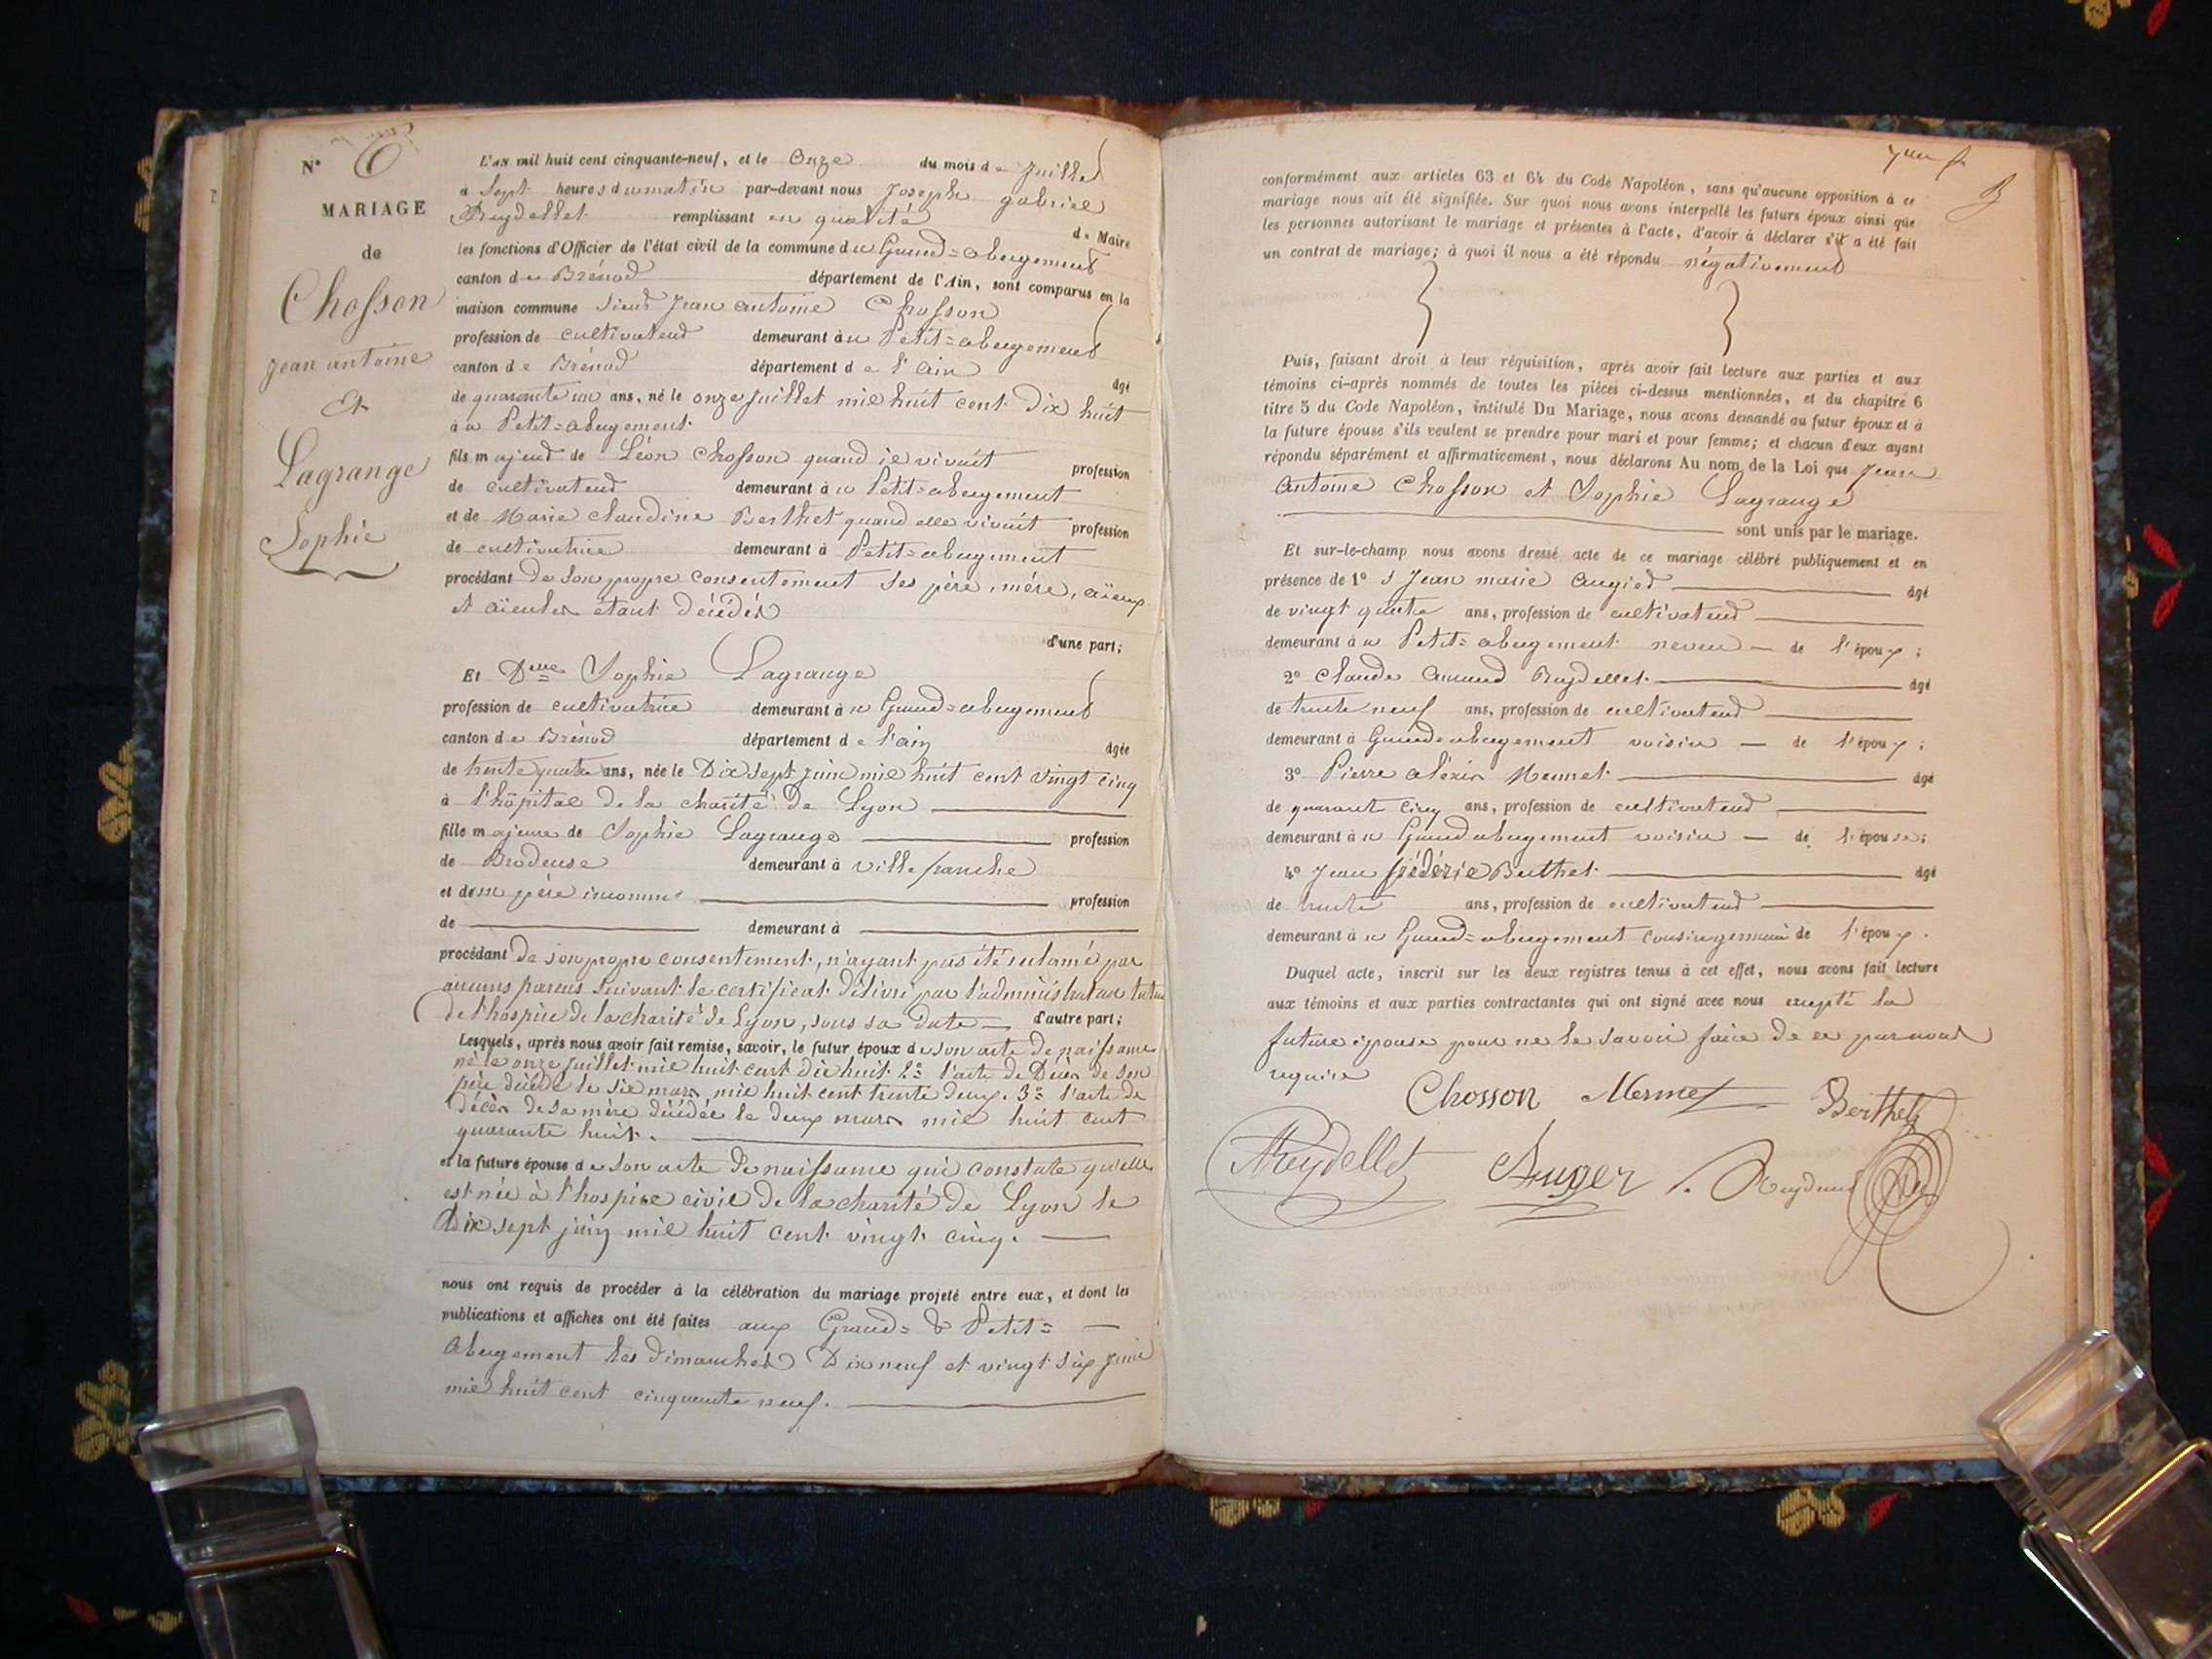 N° 6
MARIAGE
de
Chosson
jean antoine
Et
Lagrange
Sophie
L'AN mil huit cent cinquante-neuf, et le onze du mois de juillet
à Sept heures du matin par-devant nous Joseph gabriel
Reydellet remplissant en qualité de Maire
les fonctions d'Officier de l'état civil de la commune du Grand=abergement
canton de Brénod département de l'Ain, sont comparus en la
maison commune Sieur Jean antoine Chosson
profession de cultivateur demeurant au Petit=abergement
canton de Brénod département de l'ain âgé
de quarante un ans, né le onze juillet mil huit cent dix huit
au Petit=abergement.
fils majeur de Léon Chosson quand il vivait profession
de cultivateur demeurant au Petit=abergement
et de Marie Claudine Berthet quand elle vivait profession
de cultivatrice demeurant à Petit=abergement
procédant de son propre consentement ses père, mère, aïeux
et aïeules étant décédés
d'une part;
Et Delle Sophie Lagrange
profession de cultivatrice demeurant au Grand=abergement
canton de Brénod département de l'ain âgée
de trente quatre ans, née le Dix sept juin mil huit cent vingt cinq
à l'hôpital de la charité de Lyon
fille majeure de Sophie Lagrange profession
de Brodeuse demeurant à villefranche
et de un père inconnu profession
de demeurant à
procédant de son propre consentement, n'ayant pas été réclamé par
aucuns parens suivant le certificat délivré par l'administrateur tuteur
de l'hospice de la charité de Lyon, sous sa date d'autre part;
Lesquels, après nous avoir fait remise, savoir, le futur époux de son acte de naissance
né le onze juillet mil huit cent dix huit. 2° l'acte de Décès de son
père décédé le six mars mil huit cent trente deux. 3° l'acte de
décès de sa mère décédée le deux mars mil huit cent
quarante huit.
et la future épouse de son acte de naissance qui constate qu'elle
est née à l'hospice civil de la charité de Lyon le
Dix sept juin mil huit cent vingt cinq.
nous ont requis de procéder à la célébration du mariage projeté entre eux, et dont les
publications et affiches ont été faites aux Grand= & Petit=
Abergement les dimanches Dix neuf et vingt six juin
mil huit cent cinquante neuf.
conformément aux articles 63 et 64 du Code Napoléon, sans qu'aucune opposition à ce
mariage nous ait été signifiée. Sur quoi nous avons interpellé les futurs époux ainsi que
les personnes autorisant le mariage et présentes à l'acte, d'avoir à déclarer s'il a été fait
un contrat de mariage; à quoi il nous a été répondu négativement
Puis, faisant droit à leur réquisition, après avoir fait lecture aux parties et aux
témoins ci-après nommés de toutes les pièces ci-dessus mentionnées, et du chapitre 6
titre 5 du Code Napoléon, intitulé Du Mariage, nous avons demandé au futur époux et à
la future épouse s'ils veulent se prendre pour mari et pour femme; et chacun d'eux ayant
répondu séparément et affirmativement, nous déclarons Au nom de la Loi que Jean
Antoine Chosson et Sophie Lagrange
sont unis par le mariage.
Et sur-le-champ nous avons dressé acte de ce mariage célébré publiquement et en
présence de 1° s Jean marie Augier âgé
de vingt quatre ans, profession de cultivateur
demeurant au Petit=abergement neveu de l'époux;
2° Claude Armand Reydellet âgé
de trente neuf ans, profession de cultivateur
demeurant à Grand=abergement voisin de l'époux;
3° Pierre alexis Mermet âgé
de quarante cinq ans, profession de cultivateur
demeurant au Grand abergement voisin de l'épouse;
4° Jean frédéric Berthet âgé
de trente ans, profession de cultivateur
demeurant au Grand=abergement cousin germain de l'époux.
Duquel acte, inscrit sur les deux registres tenus à cet effet, nous avons fait lecture
aux témoins et aux parties contractantes qui ont signé avec nous excepté la
future épouse pour ne le savoir faire de ce par nous
requise
Chosson Mermet Berthet
Reydellet Auger